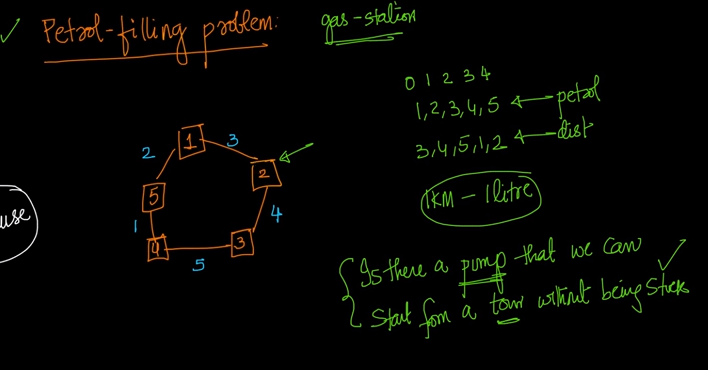 Petrol-filling problem:
gas-station
0 1 2 3 4
1,2,3,4,5 petrol
3,4,5,1,2 dist
1KM - 1litre
1
2
3
4
5
3
4
5
1
2
use
Is there a pump that we can
start from a tour without being stuck